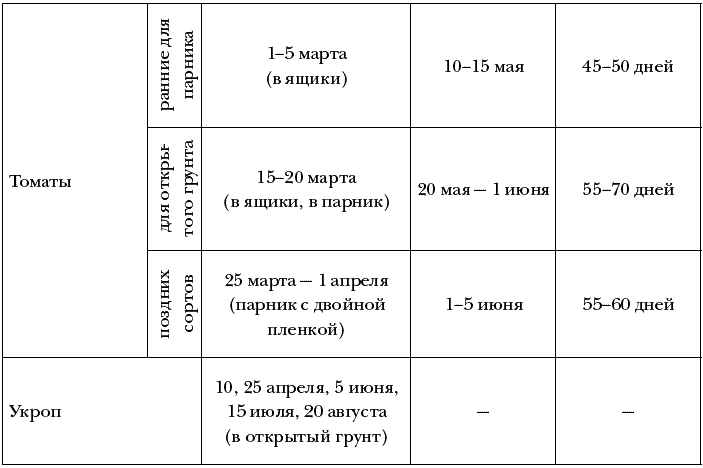 Томаты
ранние для
парника
1–5 марта
(в ящики)
10–15 мая
45–50 дней
для откры-
того грунта
15–20 марта
(в ящики, в парник)
20 мая — 1 июня
55–70 дней
поздних
сортов
25 марта — 1 апреля
(парник с двойной
пленкой)
1–5 июня
55–60 дней
Укроп
10, 25 апреля, 5 июня,
15 июля, 20 августа
(в открытый грунт)
—
—